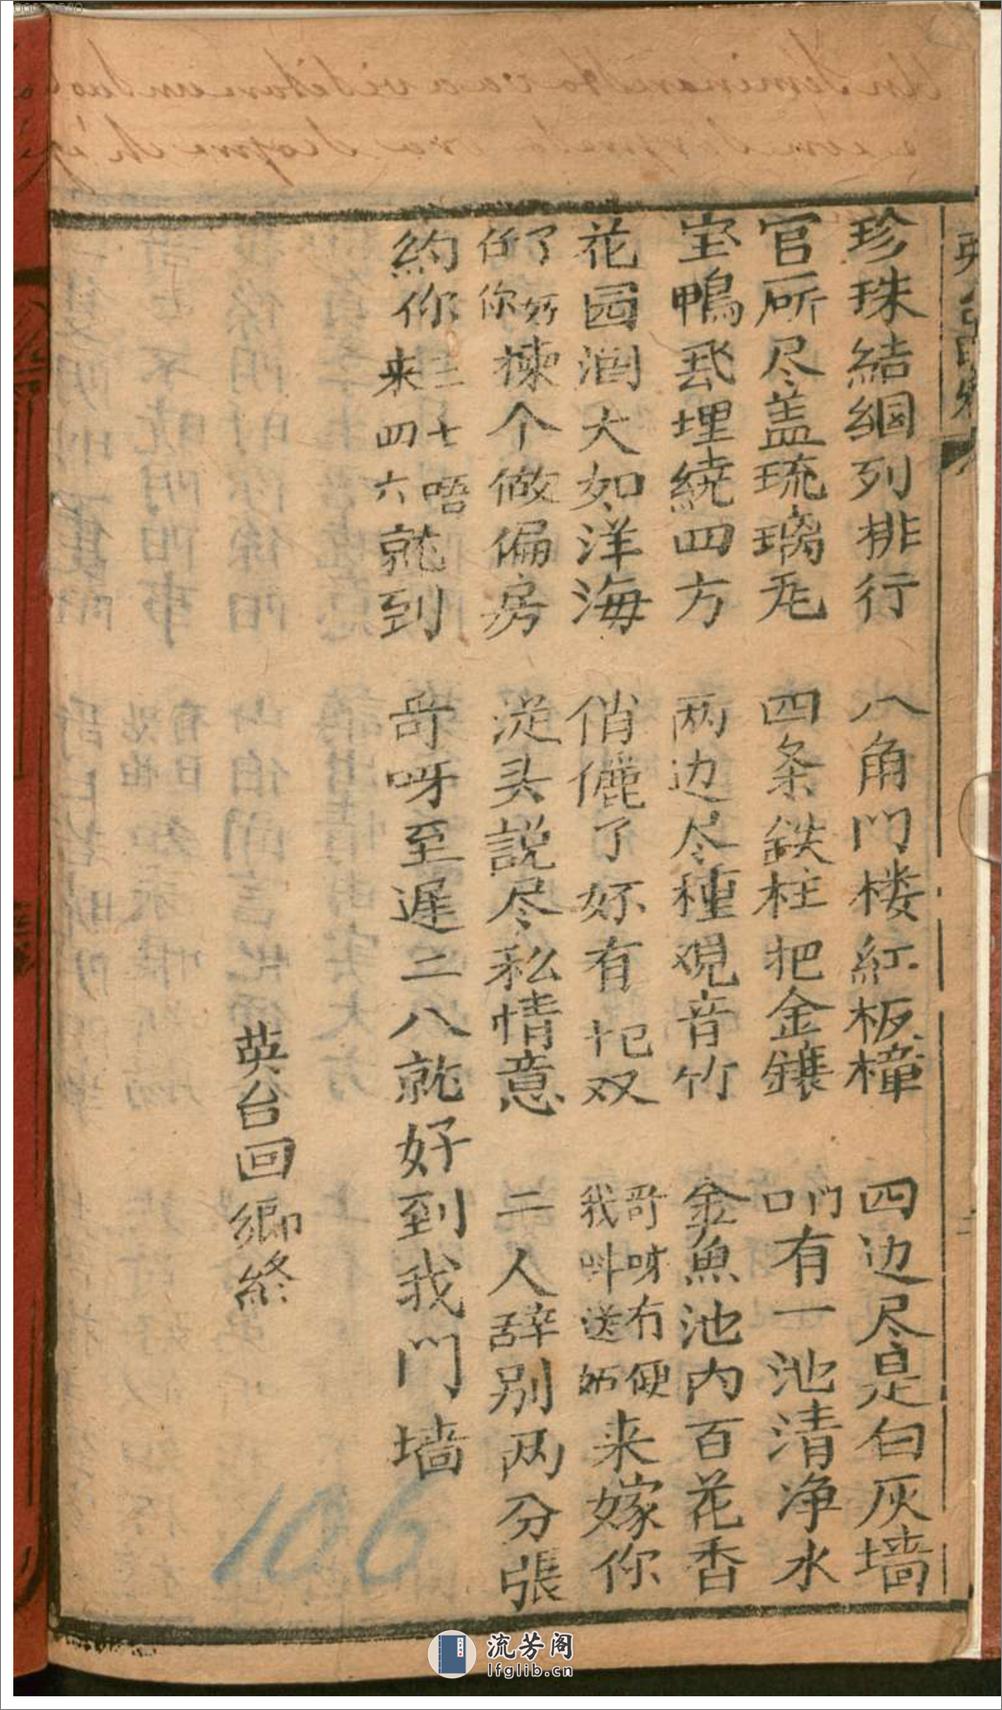 珍珠結綑列排行 八角門楼紅板樟 四边尽是白灰墙
官所尽盖琉璃尾 四条鉄柱把金鑲 門口有一池清净水
宝鴨飛埋繞四方 两边尽種观音竹 金魚池内百花香
花园濶大如洋海 俏儷了妳有十把双 哥呀冇便我呌送妳来嫁你
了妳你揀个做偏房 从头説尽私情意 二人辞别两分張
約你三七唔来四六就到 哥呀至遲二八就好到我門墙
英台回鄉終
106
流芳阁
lfglib.cn